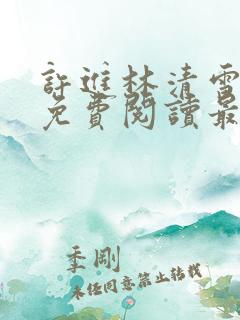 許進林清雪
免費閱讀最
季剛
未经同意禁止转载